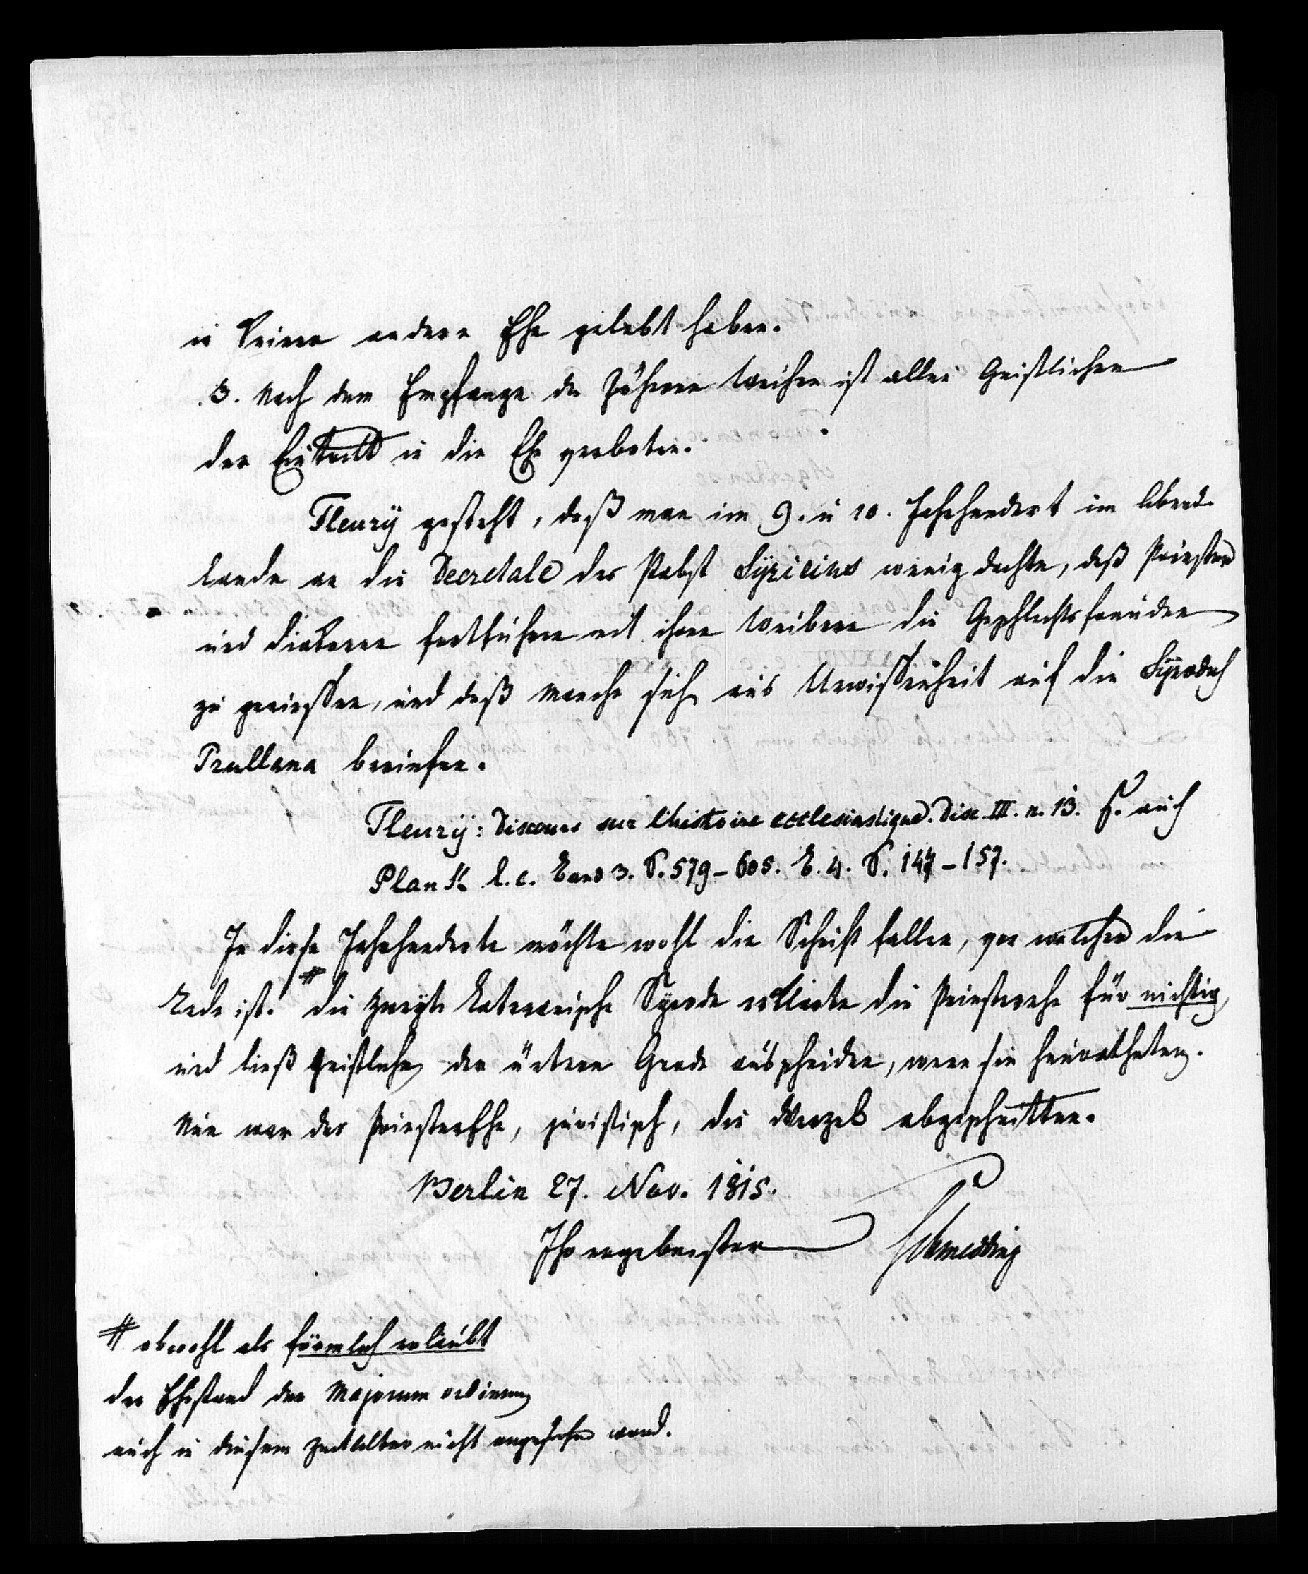 in keiner andern Ehe gelebt haben.
3. Nach dem Empfange der höheren Weihen ist allen Geistlichen
der Eintritt in die Ehe verboten.
Fleury gesteht, daß man im 9. u 10. Jahrhundert im Abend-
lande an die Decretale des Pabst Syricius wenig dachte, daß Priester
und Diakonen fortfuhren mit ihren Weibern die Geschlechtsfreuden
zu geniessen, und daß manche sich aus Unwissenheit auf die Synodus
Trullana beriefen.
Fleury: Discours sur l'histoire ecclesiastique. Disc. III. n. 13. S. auch
Plank l.c. Band 3. S. 579-608. B. 4. S. 147-157.
In diese Jahrhunderte möchte wohl die Schrift fallen, von welcher die
Rede ist. # die zweyte Lateranische Synode erklärte die Priesterehe für nichtig,
und ließ Geistliche der untern Grade ausscheiden, wenn sie heiratheten.
Nun war der Priesterehe, juristisch, die Wurzel abgeschnitten.
Berlin 27. Nov. 1815.
Ihr ergebenster Schmedding
# obwohl als förmlich erlaubt
der Ehestand der Majorum ordinum
auch in diesem Zeitalter nicht angesehen ward.